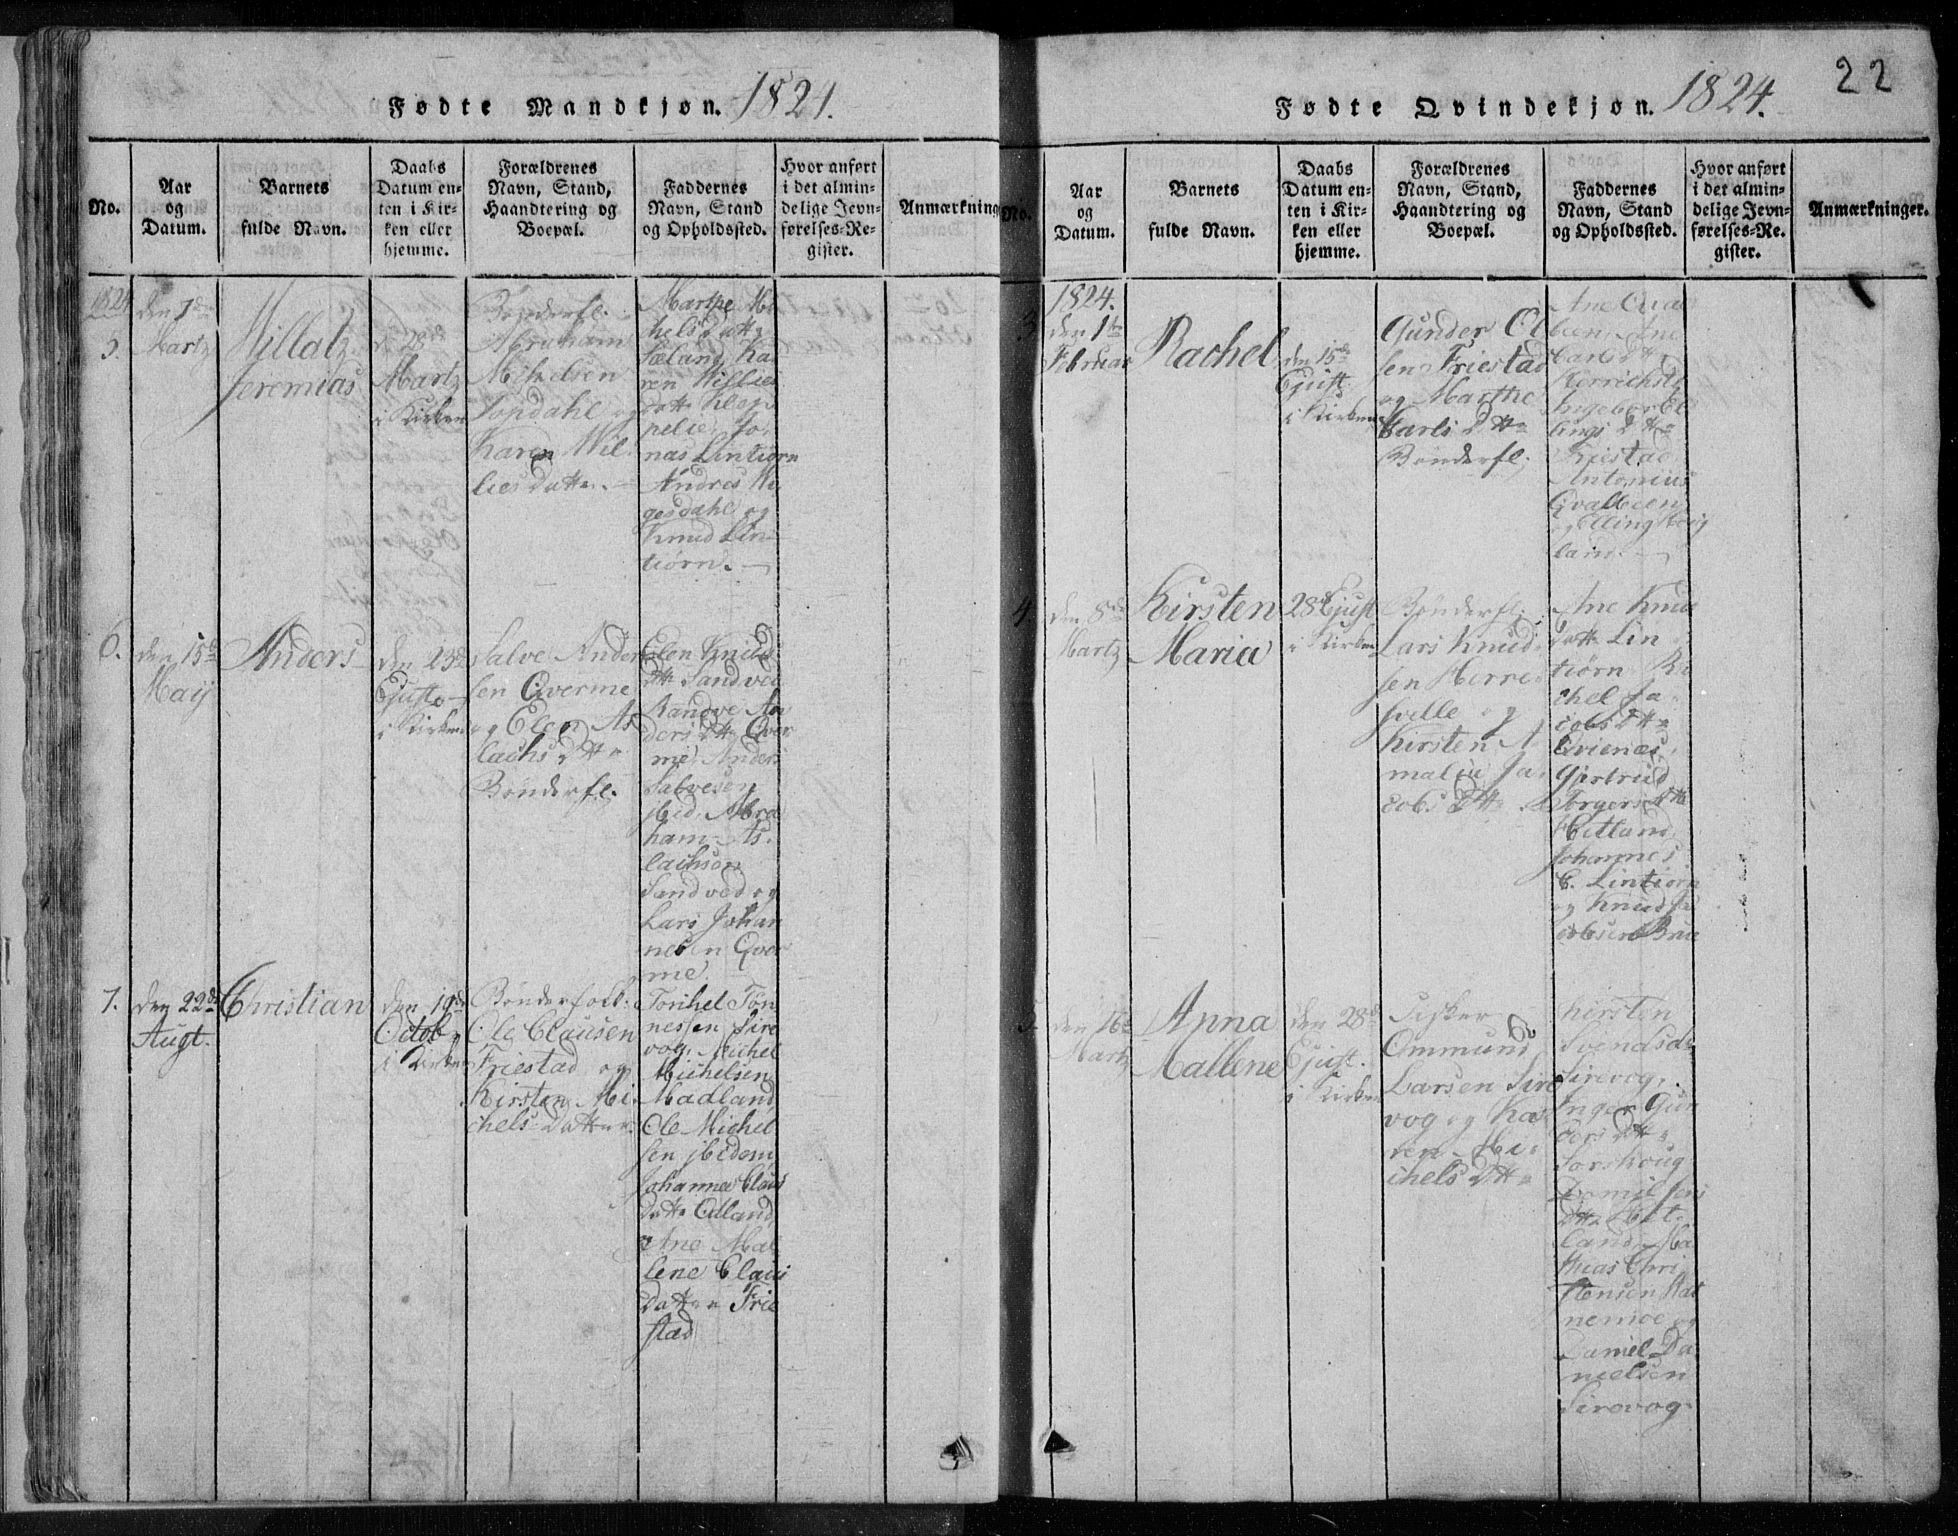 Fødte Mandkjøn. 1824.
No.
Aar
og
Datum.
Barnets
fulde Navn.
Daabs
Datum en-
ten i Kir-
ken eller
hjemme.
Forældrenes
Navn, Stand,
Haandtering og
Boepæl.
Faddernes
Navn, Stand
og Opholdssted.
Hvor anført
i det almin-
delige Jevn-
førelses-Re-
gister.
Anmærkning
1824
5.
den 7de
Martz
Willatz
Jeremias
d. 28
Martz
i Kirken
Bønderfl.
Abraham
Michelsen
Jøpdahl og
Karen Wil-
liesdattr.
Marthe Mi-
chelsDattr
Sæland, Ka-
ren Willies
dattr Klep-
pelie, Jo-
nas Lintiørn
Andres He-
gesdahl og
Knud Lin-
tiørn.
6.
den 15de
Maij
Anders
den 23de
Ejust.
i Kirken
Salve Anders
sen Qverme
og Elen As-
lachs Dttr
Bønderfl.
Elen Knuds
Dttr Sandved
Randve An-
ders Dttr Qver
me, Anders
Salvesen
ibid. Abra-
ham As-
lachsen
Sandved og
Lars Johan-
nesen Qver
me.
7.
den 22de
Augt.
Christian
den 19de
Octobr
i Kirken
Bønderfolk
Ole Clausen
Friestad og
Kirsten Mi-
chels Datter.
Torchel Tøn
nessen Sire
vog, Michel
Michelsen
Madland,
Ole Michel
sen ibidem,
Johanne Claus
Dattr Odland,
Ane Mal
lene Claus
Datter Frie
stad
22
Fødte Qvindekjøn. 1824.
No.
Aar
og
Datum.
Barnets
fulde Navn.
Daabs
Datum en-
ten i Kir-
ken eller
hjemme.
Forældrenes
Navn, Stand,
Haandtering og
Boepæl.
Faddernes
Navn, Stand
og Opholdssted.
Hvor anført
i det almin-
delige Jevn-
førelses-Re-
gister.
Anmærkninger.
1824.
3.
den 1te
Februar
Rachel
den 15de
Ejust.
i Kirken
Gunder Ol-
sen Friestad
og Marthe
Karls Dttr
Bønderfl.
Ane Qval
been, Ane
Carls Dttr
Ingebor El-
lings Dttr
Friestad
Antonius
Qvalbeen
og Elling Hoig
land.
4.
den 8de
Martz
Kirsten
Maria
28de Ejust
i Kirken
Bønderfl.
Lars Knud-
sen Herre-
svelle og
Kirsten A-
malia Ja-
cobs Dttr
Ane Knuds
Dattr Lin
tiørn Ra-
chel Ja-
cobs Dttr
Qvienæs,
Giertrud
Torgers Dttr
Hetland,
Johannes
C. Lintiørn
og Knud Ja
cobsen Brue
5.
den 16de
Martz
Anna
Mallene
den 28de
Ejust.
i Kirken
Fisker
Ommund
Larsen Sire
vog og Ka-
ren Mi-
chels Dttr
Kirsten
Svendsdr
Sirevog,
Inger Gun
ders Dttr
Dttr Het-
land, Ma-
thias Chri-
stensen Vat
nemoe og
Daniel Da-
nielsen
Sirevog